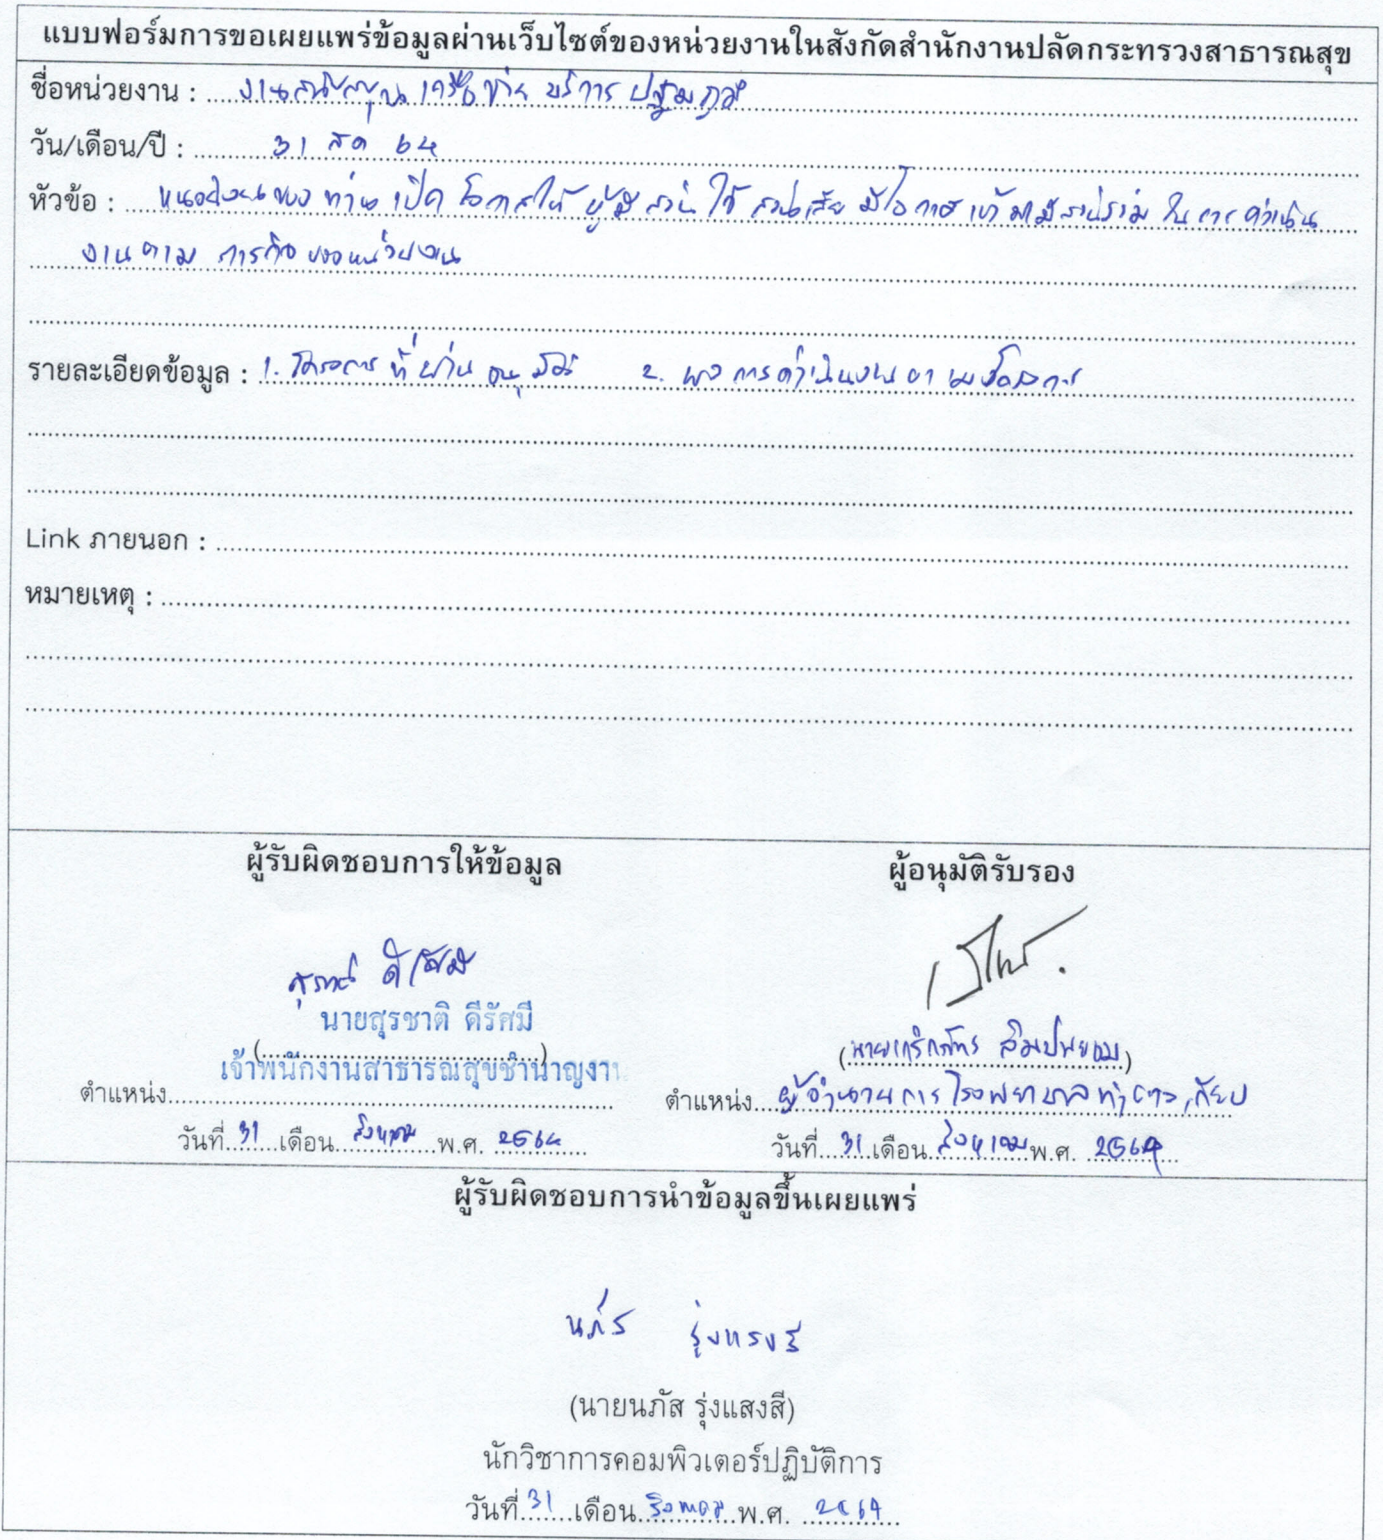 แบบฟอร์มการขอเผยแพร่ข้อมูลผ่านเว็บไซต์ของหน่วยงานในสังกัดสำนักงานปลัดกระทรวงสาธารณสุข
ชื่อหน่วยงาน : งานสนับสนุนเครือข่าย บริการ ปฐมภูมิ
วัน/เดือน/ปี : 31 สค 64
หัวข้อ : หน่วยงานของ ท่าน เปิด โอกาสให้ ผู้มี ส่วน ได้ ส่วนเสีย มีโอกาส เข้ามามีส่วนร่วม ในการดำเนิน
งานตาม ภารกิจ ของหน่วยงาน
รายละเอียดข้อมูล : 1. โครงการ ที่ ผ่าน อนุมัติ 2. ผลการดำเนินงานตาม โครงการ
Link ภายนอก :
หมายเหตุ :
ผู้รับผิดชอบการให้ข้อมูล
ผู้อนุมัติรับรอง
สุรชาติ ดีรัศมี
นายสุรชาติ ดีรัศมี
เจ้าพนักงานสาธารณสุขชำนาญงาน
ตำแหน่ง
วันที่ 31 เดือน สิงหาคม พ.ศ. 2564
ตำแหน่ง ผู้อำนวยการ โรงพยาบาล
วันที่ 31 เดือน สิงหาคม พ.ศ. 2564
ผู้รับผิดชอบการนำข้อมูลขึ้นเผยแพร่
นภัส รุ่งแสงสี
(นายนภัส รุ่งแสงสี)
นักวิชาการคอมพิวเตอร์ปฏิบัติการ
วันที่ 31 เดือน สิงหาคม พ.ศ. 2564